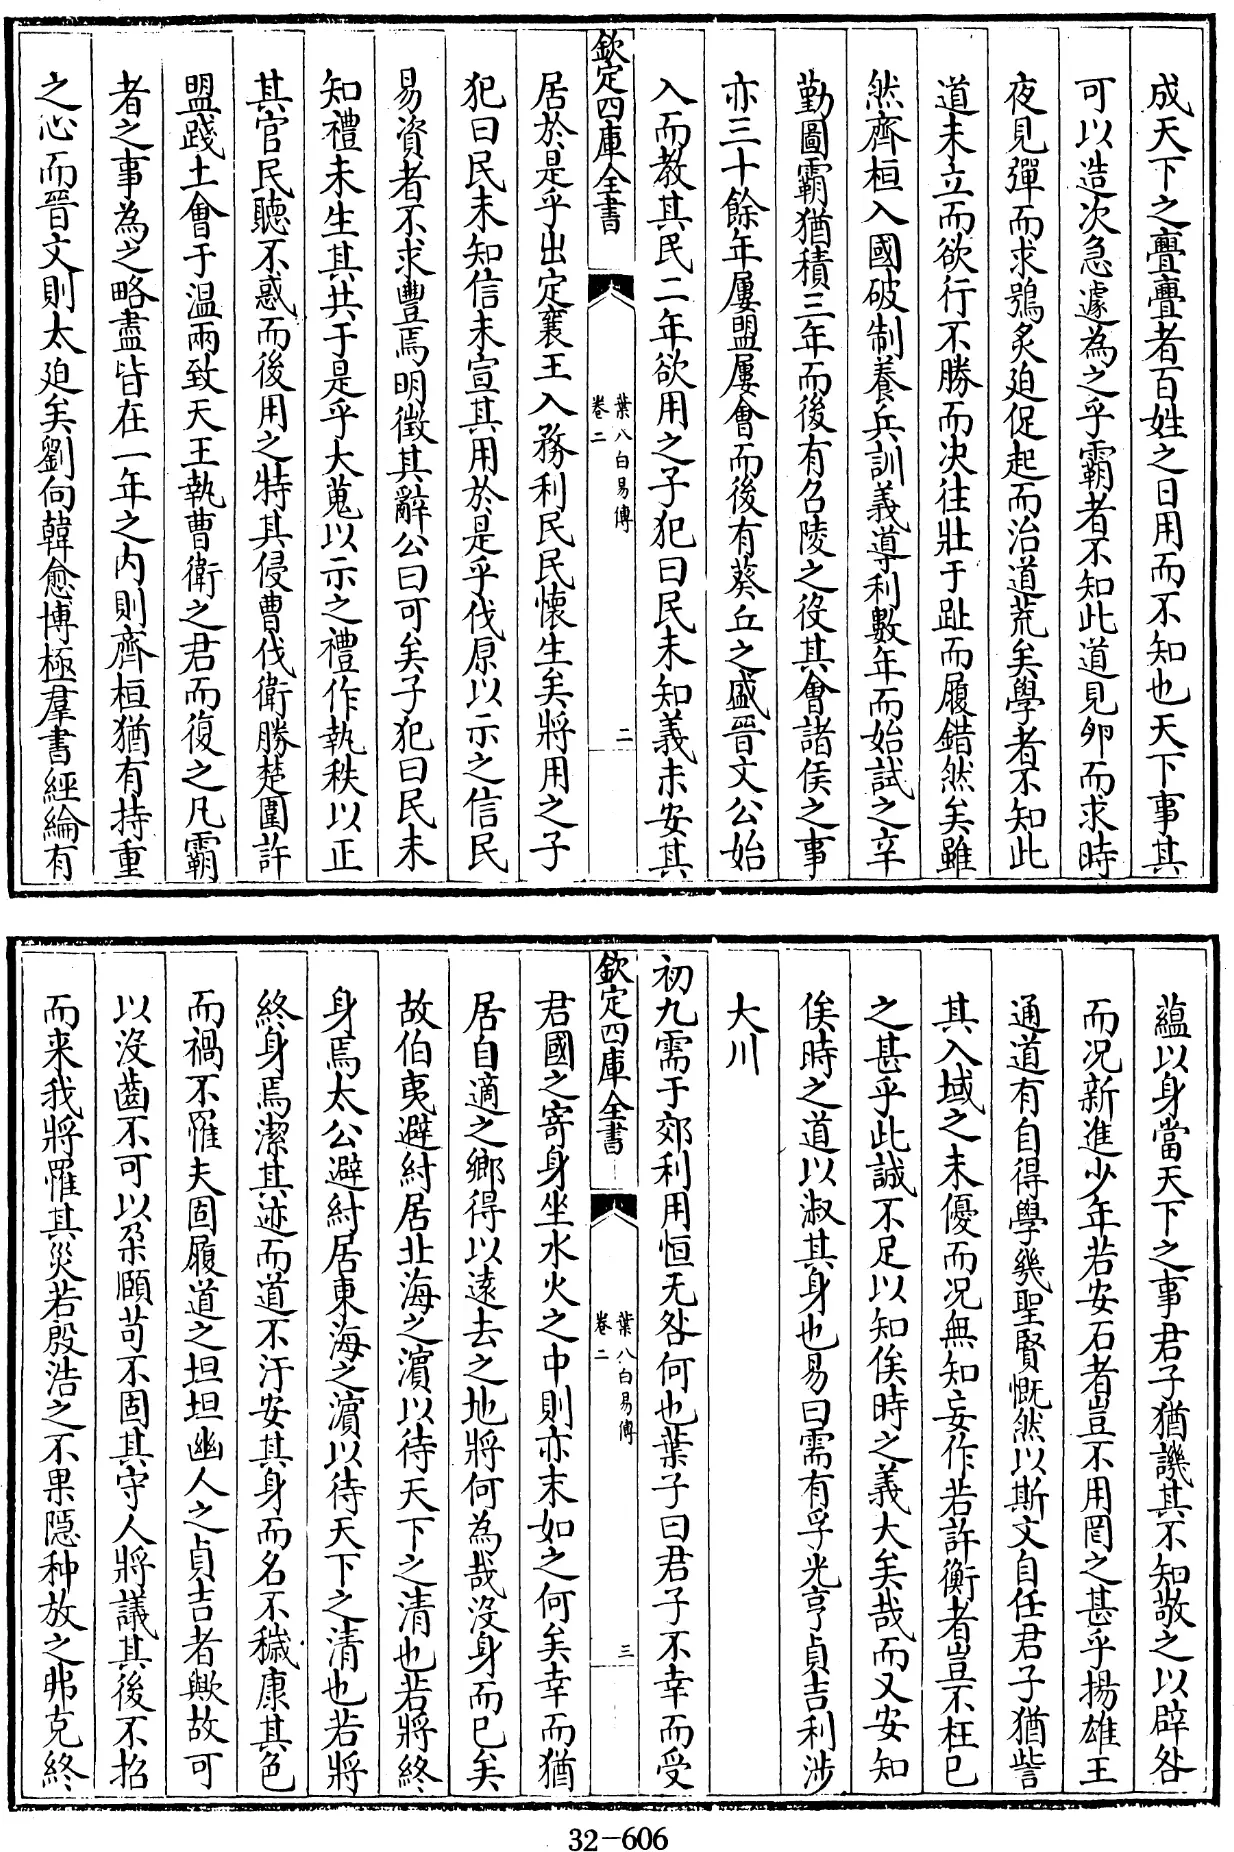 成天下之亹亹者百姓之日用而不知也天下事其
可以造次急遽為之乎霸者不知此道見卵而求時
夜見彈而求鴞炙廹促起而治道荒矣學者不知此
道未立而欲行不勝而決往壯于趾而履錯然矣雖
然齊桓入國破制養兵訓義導利數年而始試之辛
勤圖霸猶積三年而後有召陵之役其會諸侯之事
亦三十餘年屢盟屢會而後有葵丘之盛晉文公始
入而教其民二年欲用之子犯曰民未知義未安其
欽定四庫全書
葉八白易傳
卷二
二
居於是乎出定襄王入務利民民懷生矣將用之子
犯曰民未知信未宣其用於是乎伐原以示之信民
易資者不求豐焉明徵其辭公曰可矣子犯曰民未
知禮未生其共于是乎大蒐以示之禮作執秩以正
其官民聽不惑而後用之特其侵曹伐衛勝楚圍許
盟踐土會于温兩致天王執曹衛之君而復之凡霸
者之事為之略盡皆在一年之内則齊桓猶有持重
之心而晉文則太廹矣劉向韓愈博極羣書經綸有
蘊以身當天下之事君子猶譏其不知敬之以辟咎
而况新進少年若安石者豈不用罔之甚乎揚雄王
通道有自得學幾聖賢慨然以斯文自任君子猶訾
其入域之未優而况無知妄作若許衡者豈不枉已
之甚乎此誠不足以知俟時之義大矣哉而又安知
俟時之道以淑其身也易曰需有孚光亨貞吉利涉
大川
初九需于郊利用恒无咎何也葉子曰君子不幸而受
欽定四庫全書
葉八白易傳
卷二
三
君國之寄身坐水火之中則亦末如之何矣幸而猶
居自適之鄉得以遠去之地將何為哉没身而已矣
故伯夷避紂居北海之濵以待天下之清也若將終
身焉太公避紂居東海之濵以待天下之清也若將
終身焉潔其迹而道不汙安其身而名不穢康其色
而禍不罹夫固履道之坦坦幽人之貞吉者歟故可
以沒齒不可以朶頤苟不固其守人將議其後不招
而来我將罹其災若殷浩之不果隠种放之弗克終
32-606